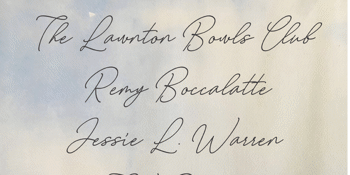 The Lawnton Bowls Club
Remy Boccalatte
Jessie L. Warren